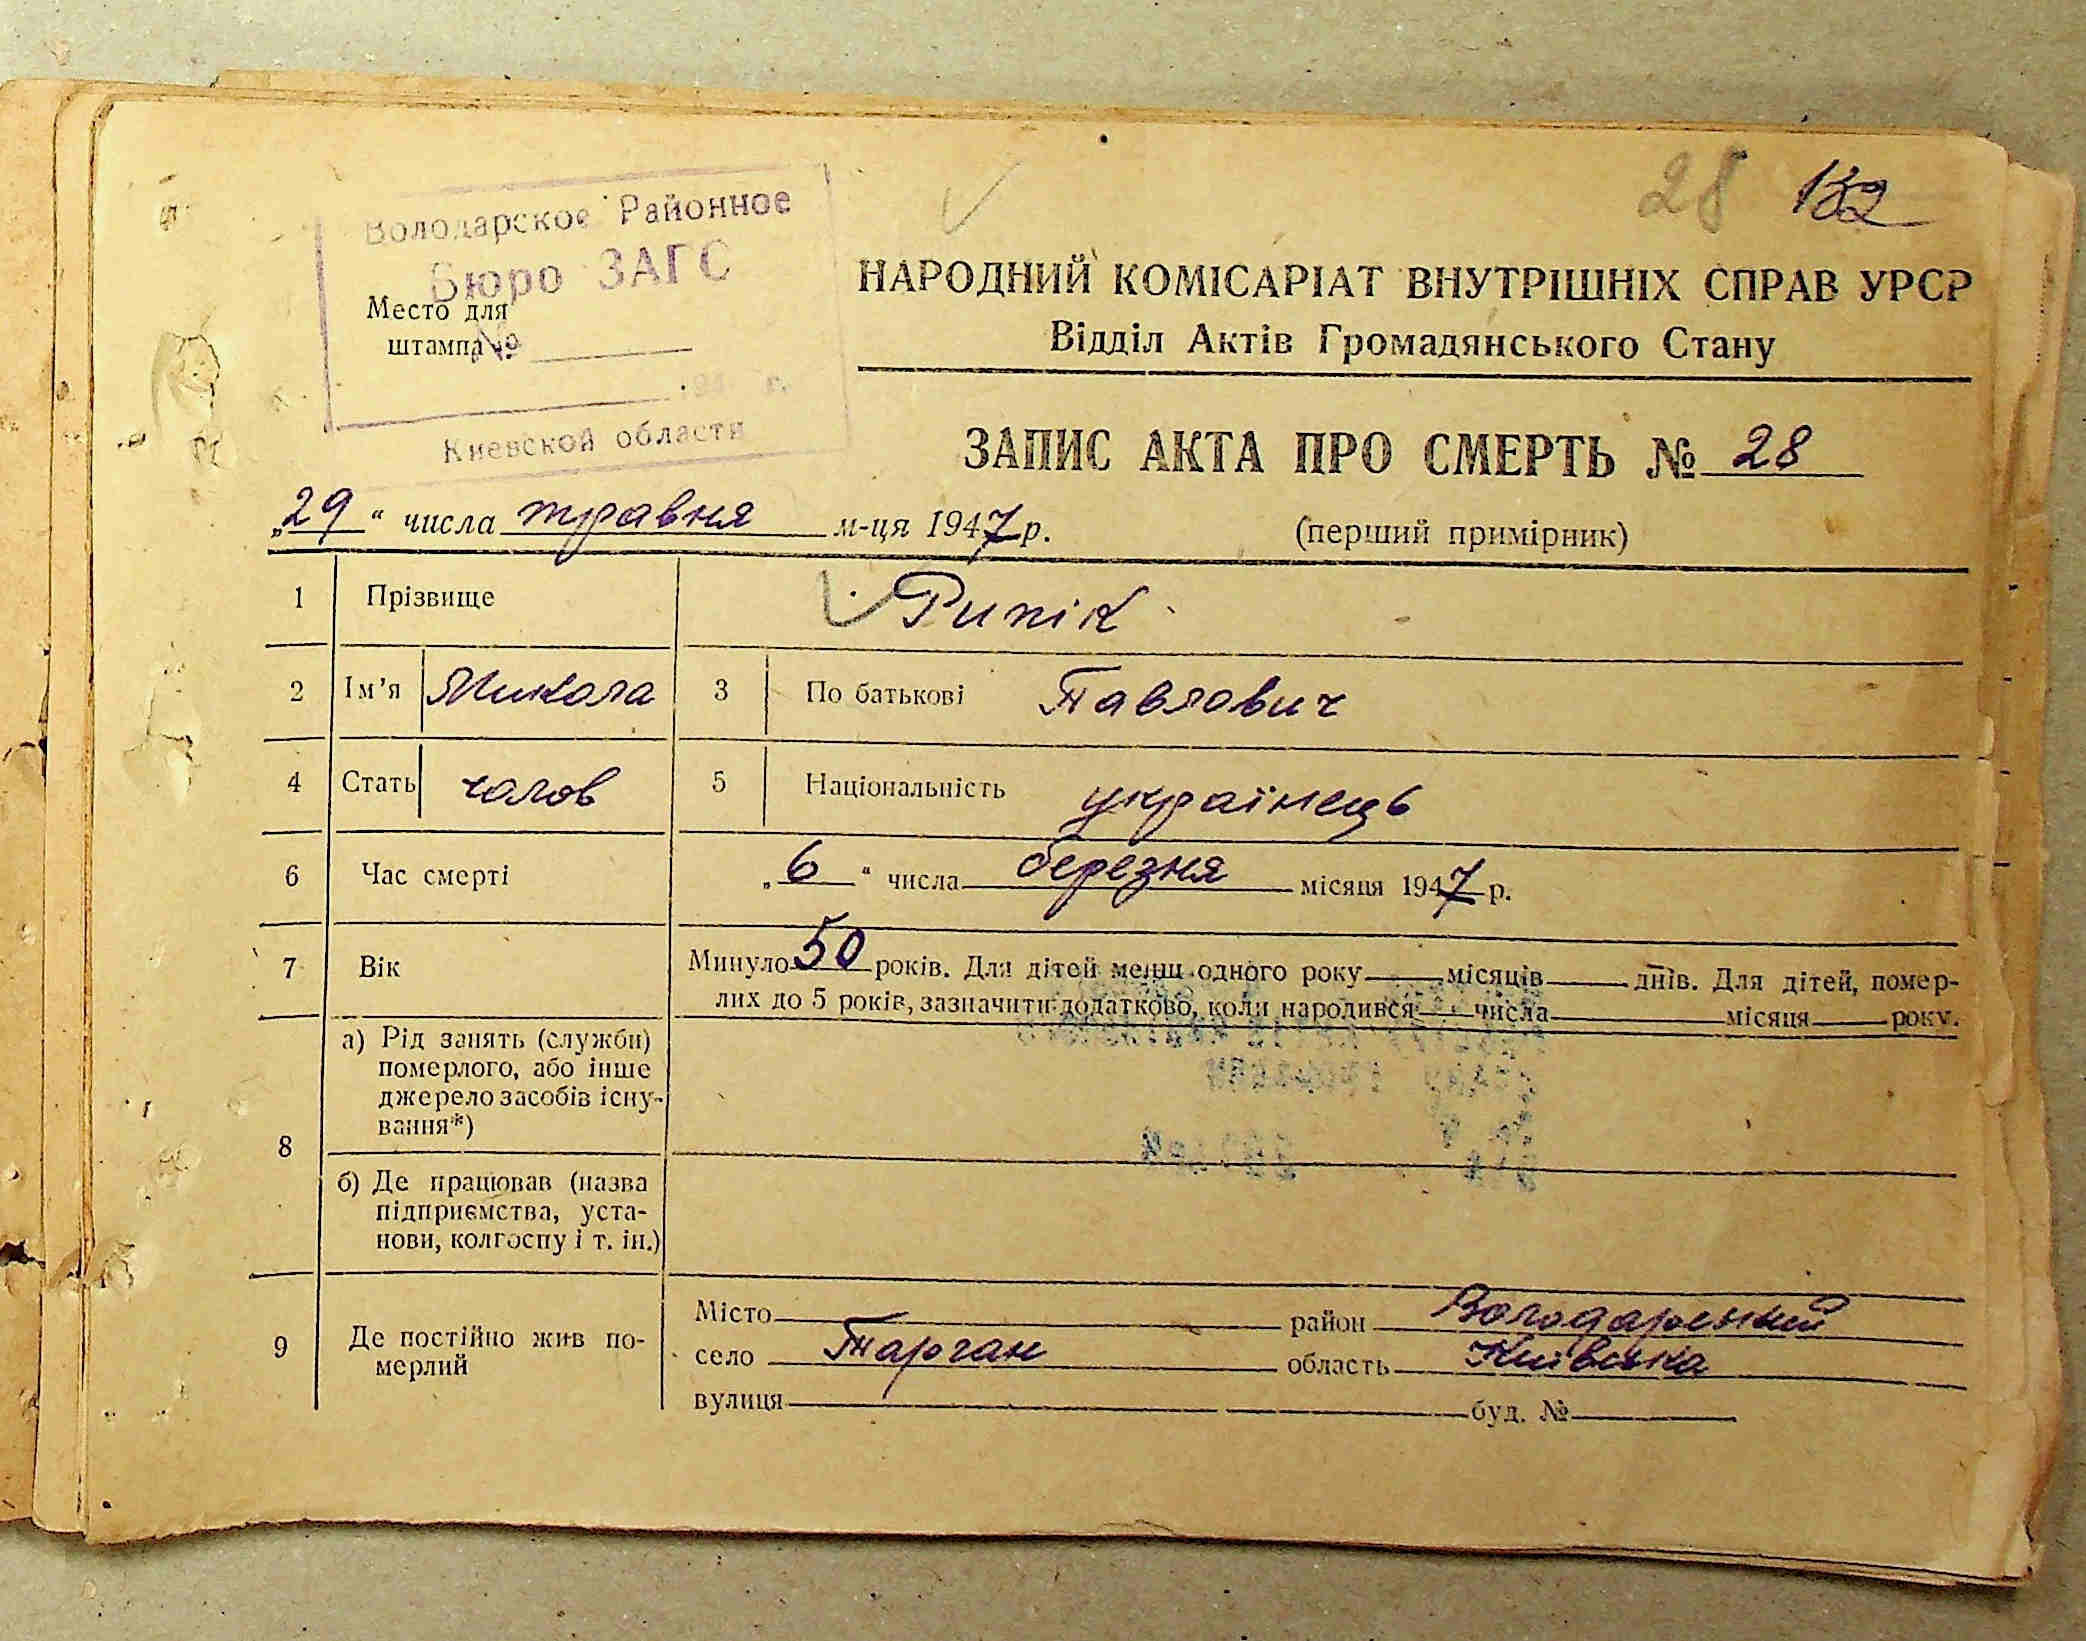 28 132
Володарское Районное
Бюро ЗАГС
Место для
штампа
№
г.
Киевской области
НАРОДНИЙ КОМІСАРІАТ ВНУТРІШНІХ СПРАВ УРСР
Відділ Актів Громадянського Стану
ЗАПИС АКТА ПРО СМЕРТЬ № 28
„29“ числа травня м-ця 1947 р.
(перший примірник)
1 Прізвище Рипік
2 Ім'я Микола 3 По батькові Павлович
4 Стать чолов 5 Національність українець
6 Час смерті „6“ числа березня місяця 1947 р.
7 Вік Минуло 50 років. Для дітей менш одного року місяців днів. Для дітей, помер-
лих до 5 років, зазначити додатково, коли народився числа місяця року.
8 а) Рід занять (служби)
померлого, або інше
джерело засобів існу-
вання*)
б) Де працював (назва
підприємства, уста-
нови, колгоспу і т. ін.)
9 Де постійно жив по-
мерлий
Місто район Володарський
село Тарган область Київська
вулиця буд. №